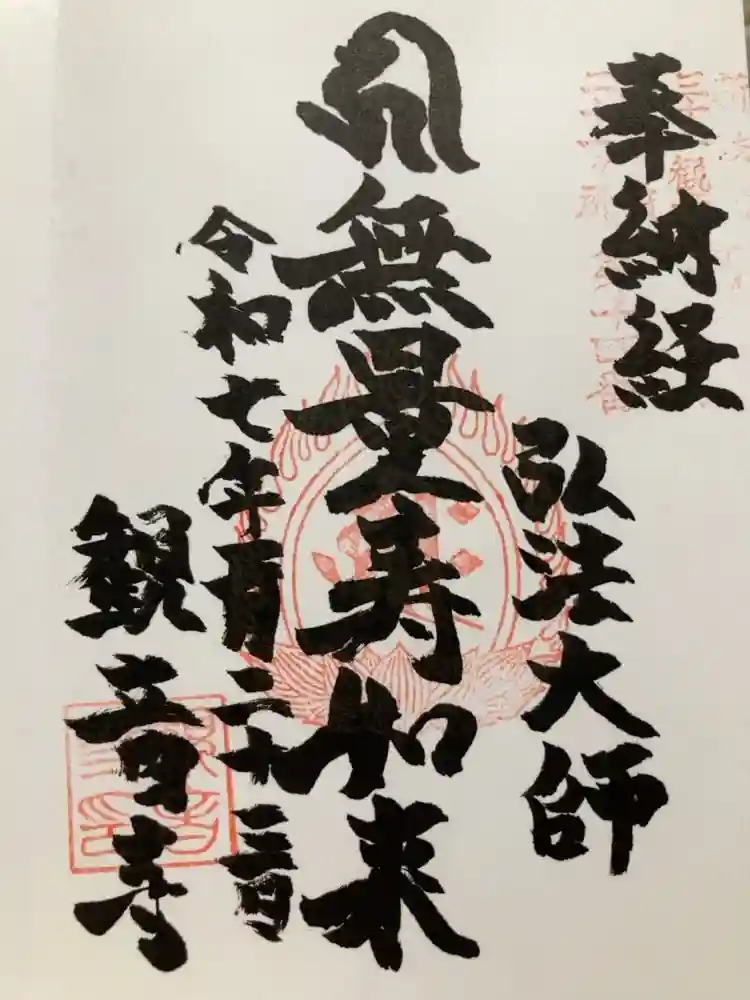 奉納経
弘法大師
無量寿如来
令和七年一月二十三日
観音寺